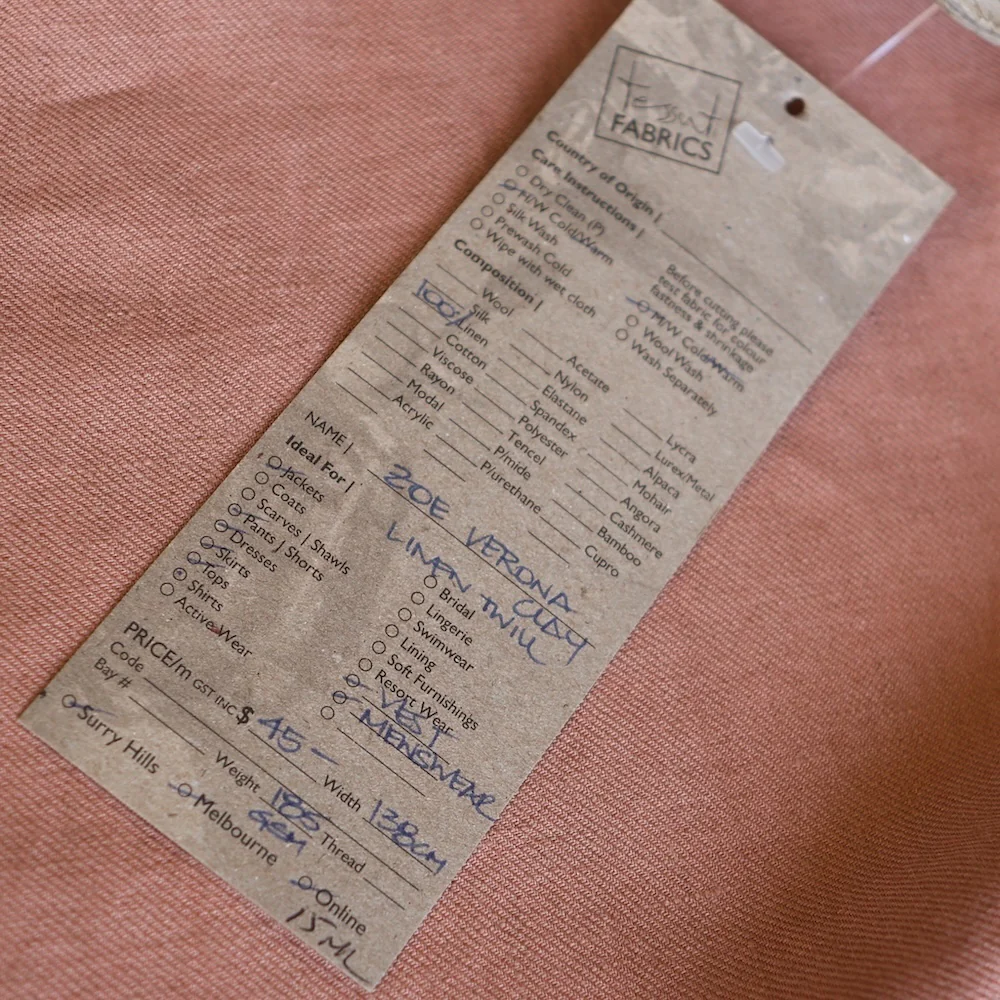 Tessuti
FABRICS
Country of Origin |
Care Instructions |
Dry Clean (P)
M/W Cold/Warm
Silk Wash
Prewash Cold
Wipe with wet cloth
Before cutting please
test fabric for colour
fastness & shrinkage
M/W Cold/Warm
Wool Wash
Wash Separately
Composition |
Wool
Silk
100% Linen
Cotton
Viscose
Rayon
Modal
Acrylic
Acetate
Nylon
Elastane
Spandex
Polyester
Tencel
P/mide
P/urethane
Lycra
Lurex/Metal
Alpaca
Mohair
Angora
Cashmere
Bamboo
Cupro
NAME | ZOE VERONA CLAY
LINEN TWILL
Ideal For |
Jackets
Coats
Scarves | Shawls
Pants | Shorts
Dresses
Skirts
Tops
Shirts
Active Wear
Bridal
Lingerie
Swimwear
Lining
Soft Furnishings
Resort Wear
VEST
MENSWEAR
PRICE/m GST INC $ 45 -
Code
Bay #
Width 138cm
Weight 185 GSM
Thread
Surry Hills
Melbourne
Online
15 ML